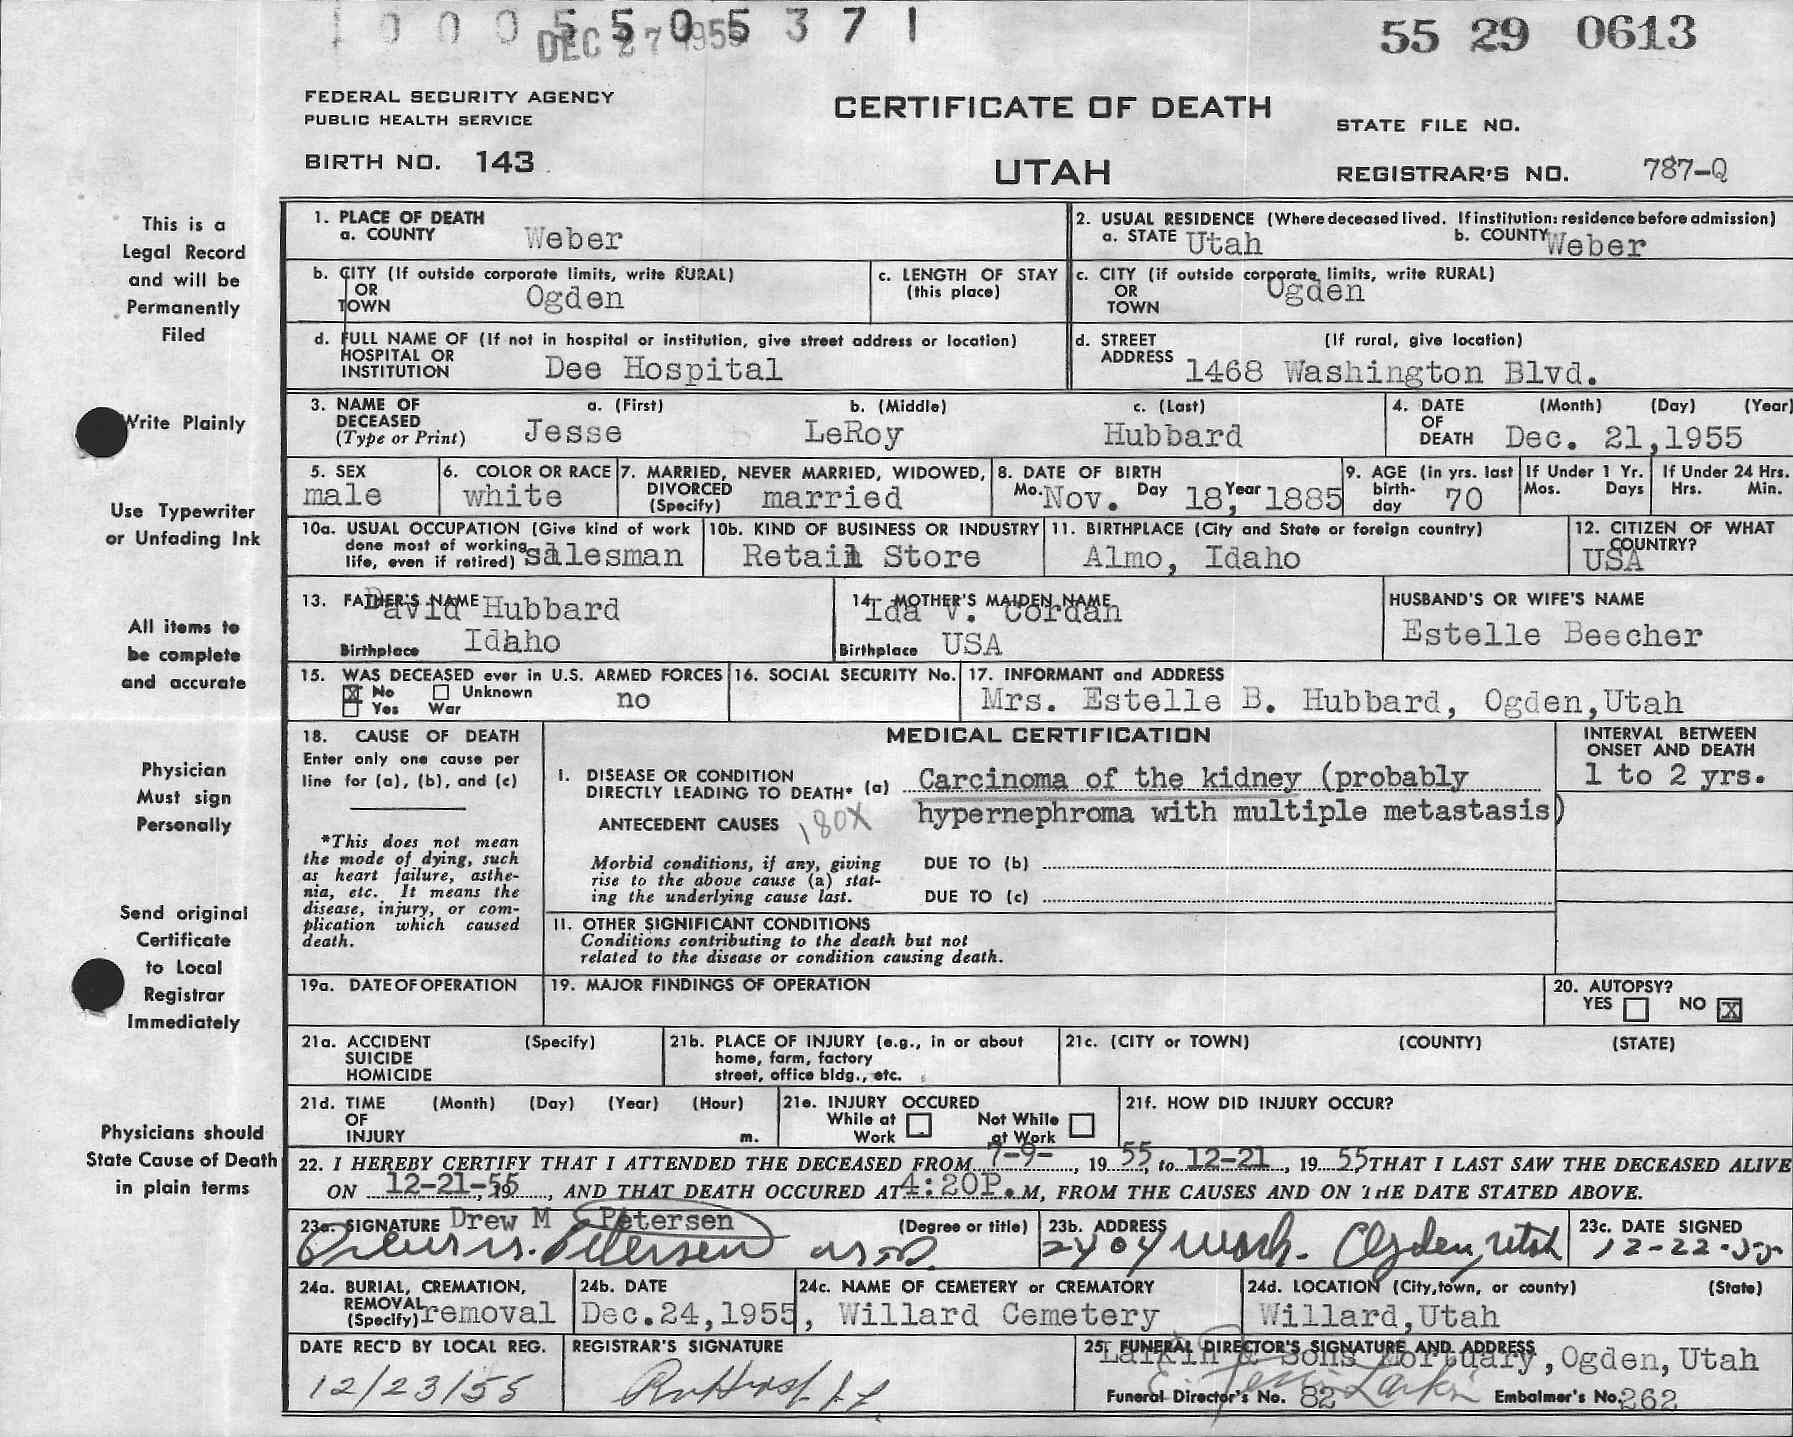 1 0 0 0 5 5 0 5 3 7 1
DEC 27 1955
55 29 0613
FEDERAL SECURITY AGENCY
PUBLIC HEALTH SERVICE
CERTIFICATE OF DEATH
STATE FILE NO.
BIRTH NO. 143
UTAH
REGISTRAR'S NO. 787-Q
This is a
Legal Record
and will be
Permanently
Filed
Write Plainly
Use Typewriter
or Unfading Ink
All items to
be complete
and accurate
Physician
Must sign
Personally
Send original
Certificate
to Local
Registrar
Immediately
Physicians should
State Cause of Death
in plain terms
1. PLACE OF DEATH
a. COUNTY Weber
2. USUAL RESIDENCE (Where deceased lived. If institution: residence before admission)
a. STATE Utah b. COUNTY Weber
b. CITY (If outside corporate limits, write RURAL)
OR
TOWN Ogden
c. LENGTH OF STAY
(this place)
c. CITY (if outside corporate limits, write RURAL)
OR
TOWN Ogden
d. FULL NAME OF (If not in hospital or institution, give street address or location)
HOSPITAL OR
INSTITUTION Dee Hospital
d. STREET (If rural, give location)
ADDRESS 1468 Washington Blvd.
3. NAME OF a. (First) b. (Middle) c. (Last)
DECEASED
(Type or Print) Jesse LeRoy Hubbard
4. DATE (Month) (Day) (Year)
OF
DEATH Dec. 21,1955
5. SEX
male
6. COLOR OR RACE
white
7. MARRIED, NEVER MARRIED, WIDOWED,
DIVORCED
(Specify) married
8. DATE OF BIRTH
Mo. Nov. Day 18, Year 1885
9. AGE (in yrs. last
birth-
day 70
If Under 1 Yr.
Mos. Days
If Under 24 Hrs.
Hrs. Min.
10a. USUAL OCCUPATION (Give kind of work
done most of working
life, even if retired) salesman
10b. KIND OF BUSINESS OR INDUSTRY
Retail Store
11. BIRTHPLACE (City and State or foreign country)
Almo, Idaho
12. CITIZEN OF WHAT
COUNTRY?
USA
13. FATHER'S NAME David Hubbard
Birthplace Idaho
14. MOTHER'S MAIDEN NAME
Ida V. Cordan
Birthplace USA
HUSBAND'S OR WIFE'S NAME
Estelle Beecher
15. WAS DECEASED ever in U.S. ARMED FORCES
X No Unknown
Yes War no
16. SOCIAL SECURITY No.
17. INFORMANT and ADDRESS
Mrs. Estelle B. Hubbard, Ogden,Utah
18. CAUSE OF DEATH
Enter only one cause per
line for (a), (b), and (c)
*This does not mean
the mode of dying, such
as heart failure, asthe-
nia, etc. It means the
disease, injury, or com-
plication which caused
death.
MEDICAL CERTIFICATION
INTERVAL BETWEEN
ONSET AND DEATH
1 to 2 yrs.
I. DISEASE OR CONDITION
DIRECTLY LEADING TO DEATH* (a) Carcinoma of the kidney (probably
hypernephroma with multiple metastasis)
ANTECEDENT CAUSES 180X
Morbid conditions, if any, giving
rise to the above cause (a) stat-
ing the underlying cause last.
DUE TO (b)
DUE TO (c)
II. OTHER SIGNIFICANT CONDITIONS
Conditions contributing to the death but not
related to the disease or condition causing death.
19a. DATE OF OPERATION
19. MAJOR FINDINGS OF OPERATION
20. AUTOPSY?
YES NO X
21a. ACCIDENT (Specify)
SUICIDE
HOMICIDE
21b. PLACE OF INJURY (e.g., in or about
home, farm, factory
street, office bldg., etc.
21c. (CITY or TOWN) (COUNTY) (STATE)
21d. TIME (Month) (Day) (Year) (Hour)
OF
INJURY m.
21e. INJURY OCCURED
While at Work Not While at Work
21f. HOW DID INJURY OCCUR?
22. I HEREBY CERTIFY THAT I ATTENDED THE DECEASED FROM 7-9-, 19 55, to 12-21, 19 55 THAT I LAST SAW THE DECEASED ALIVE
ON 12-21-55, 19, AND THAT DEATH OCCURED AT 4:20P.M, FROM THE CAUSES AND ON THE DATE STATED ABOVE.
23a. SIGNATURE Drew M Petersen (Degree or title)
Drew M. Petersen M.D.
23b. ADDRESS
2404 Wash. Ogden, Utah
23c. DATE SIGNED
12-22-55
24a. BURIAL, CREMATION,
REMOVAL
(Specify) removal
24b. DATE
Dec.24,1955,
24c. NAME OF CEMETERY or CREMATORY
Willard Cemetery
24d. LOCATION (City, town, or county) (State)
Willard,Utah
DATE REC'D BY LOCAL REG.
12/23/55
REGISTRAR'S SIGNATURE
25. FUNERAL DIRECTOR'S SIGNATURE AND ADDRESS
Larkin & Sons Mortuary, Ogden, Utah
Larkin
Funeral Director's No. 82 Embalmer's No. 262